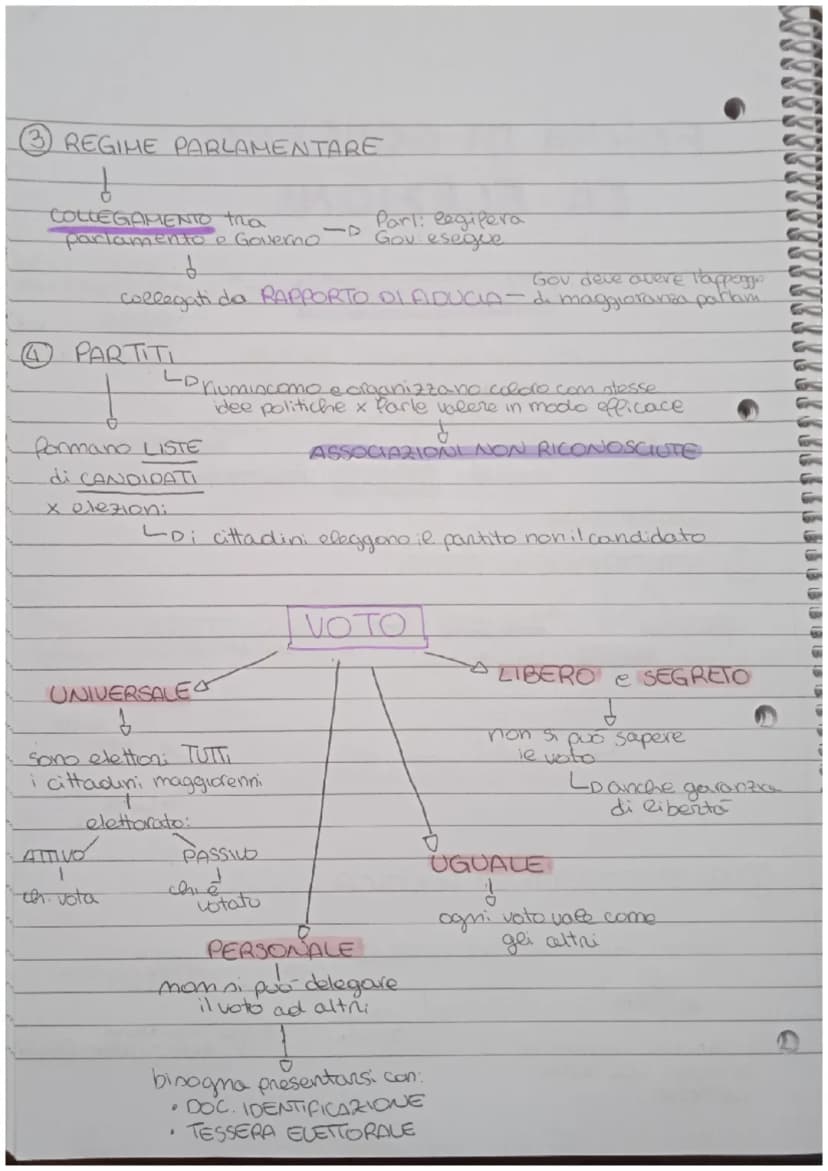 ③ REGIME PARLAMENTARE
COLLEGAMENTO tra
parlamento e Governo → Parl: legifera
Gov esegue
collegati da RAPPORTO DI FIDUCIA - Gov deve avere l'appoggio
di maggioranza parlam
④ PARTITI
riuniscono e organizzano coloro con stesse
idee politiche x farle valere in modo efficace
formano LISTE
di CANDIDATI
x elezioni
ASSOCIAZIONI NON RICONOSCIUTE
i cittadini eleggono il partito non il candidato
VOTO
UNIVERSALE
sono elettori TUTTI
i cittadini maggiorenni
elettorato:
ATTIVO
chi vota
PASSIVO
chi è
votato
PERSONALE
non si può delegare
il voto ad altri
bisogna presentarsi con:
• DOC. IDENTIFICAZIONE
• TESSERA ELETTORALE
UGUALE
ogni voto vale come
gli altri
LIBERO e SEGRETO
non si può sapere
il voto
anche garanzia
di libertà